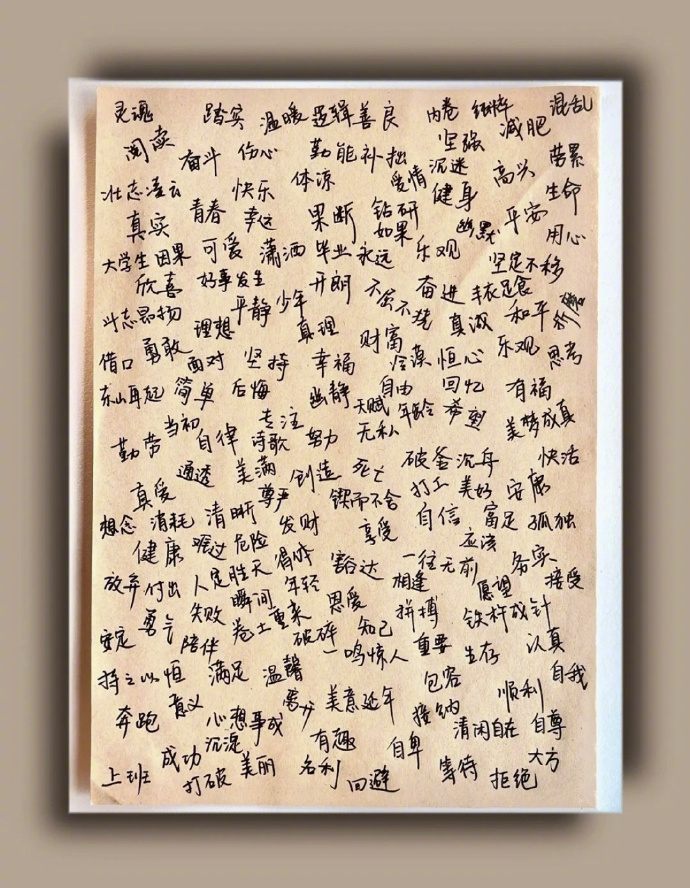 灵魂 踏实 温暖 逻辑 善良 内卷 矫情 混乱
阅读 坚强 减肥
奋斗 伤心 勤能补拙 沉迷 高兴 劳累
壮志凌云 快乐 体凉 爱情 健身 生命
真实 青春 幸运 果断 钻研 幽默 平安
大学生 因果 可爱 潇洒 毕业 永远 如果 乐观 用心
欣喜 好事发生 开朗 奋进 丰衣足食 坚定不移
斗志昂扬 理想 平静 少年 真理 不屈不挠 真诚 和平 折磨
借口 勇敢 面对 坚持 幸福 财富 冷漠 恒心 乐观 思考
东山再起 简单 后悔 幽静 自由 回忆 有福
勤劳 当初 自律 专注 诗歌 努力 天赋 无私 年龄 希望 美梦成真
通透 美满 创造 死亡 破釜沉舟 快活
真爱 尊严 锲而不舍 打工 美好 安康
想念 消耗 清晰 发财 享受 自信 富足 孤独
健康 难过 危险 得体 豁达 一往无前 应该 务实
放弃 付出 人定胜天 年轻 相逢 愿望 接受
安定 勇气 失败 瞬间 卷土重来 恩爱 拼搏 铁杵成针
陪伴 破碎 知己 重要 生存 认真
持之以恒 满足 温馨 一鸣惊人 包容 自我
奔跑 意义 心想事成 美意延年 接纳 顺利
成功 沉淀 有趣 自卑 清闲自在 自尊
上班 打破 美丽 名利 回避 等待 拒绝 大方